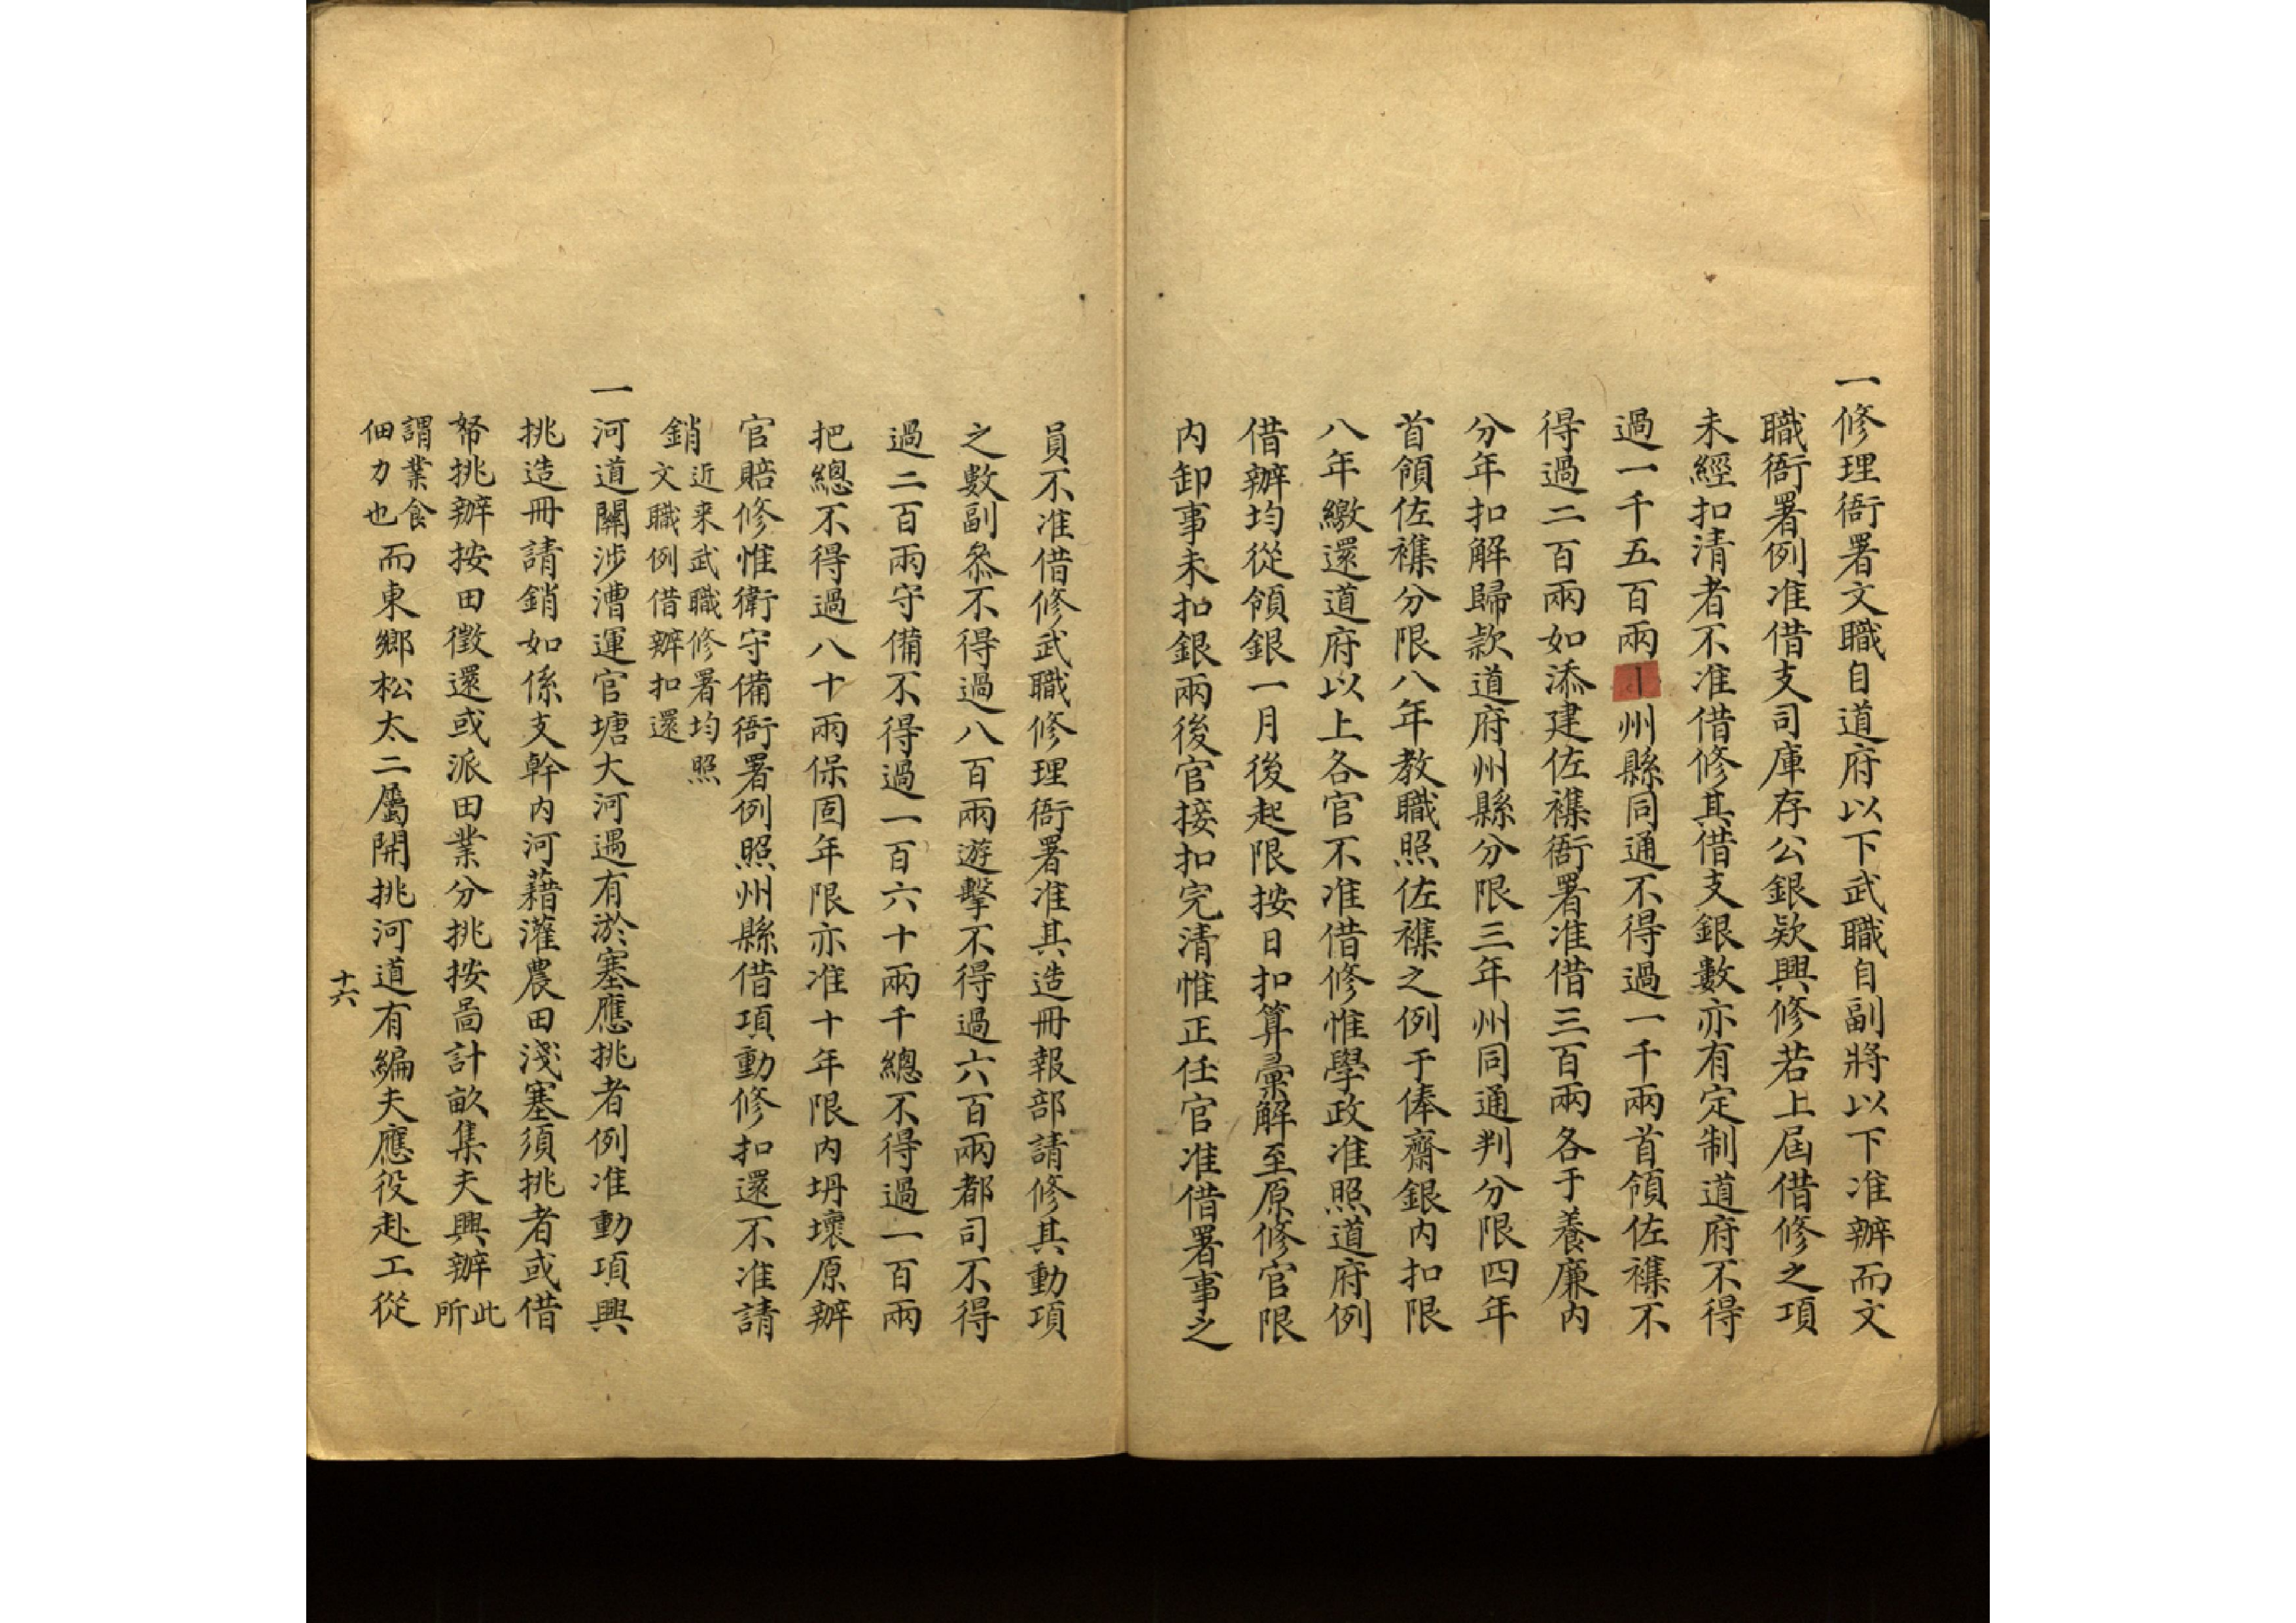 一修理衙署文職自道府以下武職自副將以下准辦而文
職衙署例准借支司庫存公銀欵興修若上屆借修之項
未經扣清者不准借修其借支銀數亦有定制道府不得
過一千五百兩州縣同通不得過一千兩首領佐襍不
得過二百兩如添建佐襍衙署准借三百兩各于養廉內
分年扣解歸款道府州縣分限三年州同通判分限四年
首領佐襍分限八年教職照佐襍之例于俸齋銀內扣限
八年繳還道府以上各官不准借修惟學政准照道府例
借辦均從領銀一月後起限按日扣算彙解至原修官限
內卸事未扣銀兩後官接扣完清惟正任官准借署事之
員不准借修武職修理衙署准其造冊報部請修其動項
之數副叅不得過八百兩遊擊不得過六百兩都司不得
過二百兩守備不得過一百六十兩千總不得過一百兩
把總不得過八十兩保固年限亦准十年限內坍壞原辦
官賠修惟衛守備衙署例照州縣借項動修扣還不准請
銷近来武職修署均照
文職例借辦扣還
一河道關涉漕運官塘大河遇有淤塞應挑者例准動項興
挑造冊請銷如係支幹內河藉灌農田淺塞須挑者或借
帑挑辦按田徵還或派田業分挑按啚計畝集夫興辦此
所
謂業食
佃力也而東鄉松太二屬開挑河道有編夫應役赴工從
十六